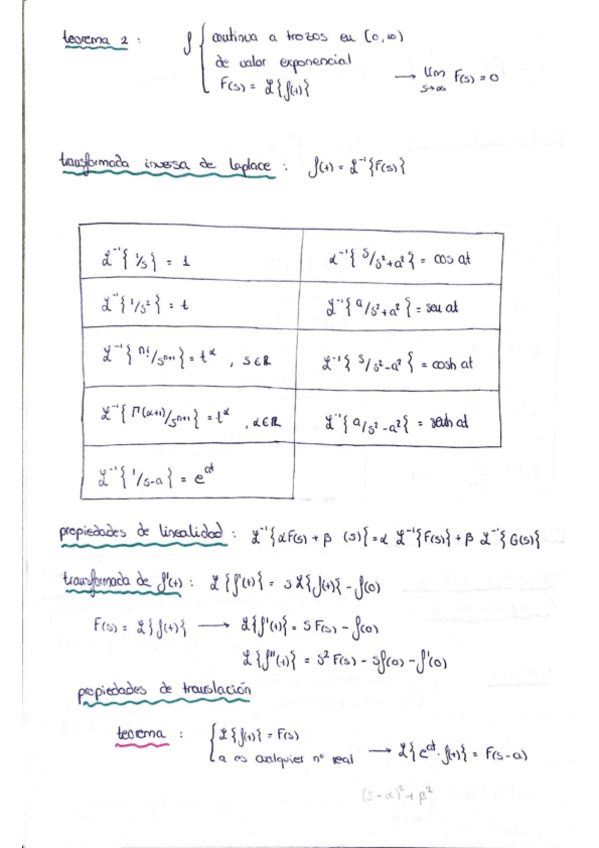 teorema 2 : f { continua a trozos en [0,∞)
de valor exponencial
F(s) = ℒ{f(t)} → lim s→∞ F(s) = 0
transformada inversa de laplace : f(t) = ℒ⁻¹{F(s)}
ℒ⁻¹{1/s} = 1
ℒ⁻¹{s/s²+a²} = cos at
ℒ⁻¹{1/s²} = t
ℒ⁻¹{a/s²+a²} = sen at
ℒ⁻¹{n!/sⁿ⁺¹} = tᵅ , s∈ℝ
ℒ⁻¹{s/s²-a²} = cosh at
ℒ⁻¹{Γ(α+1)/sⁿ⁺¹} = tᵅ , α∈ℝ
ℒ⁻¹{a/s²-a²} = senh at
ℒ⁻¹{1/s-a} = eᵃᵗ
propiedades de linealidad : ℒ⁻¹{αF(s) + β (s)} = α ℒ⁻¹{F(s)} + β ℒ⁻¹{G(s)}
transformada de f'(t) : ℒ{f'(t)} = sℒ{f(t)} - f(0)
F(s) = ℒ{f(t)} → ℒ{f'(t)} = sF(s) - f(0)
ℒ{f''(t)} = s²F(s) - sf(0) - f'(0)
propiedades de translación
teorema : { ℒ{f(t)} = F(s)
a es cualquier nº real → ℒ{eᵃᵗ·f(t)} = F(s-a)
(s-α)²+β²